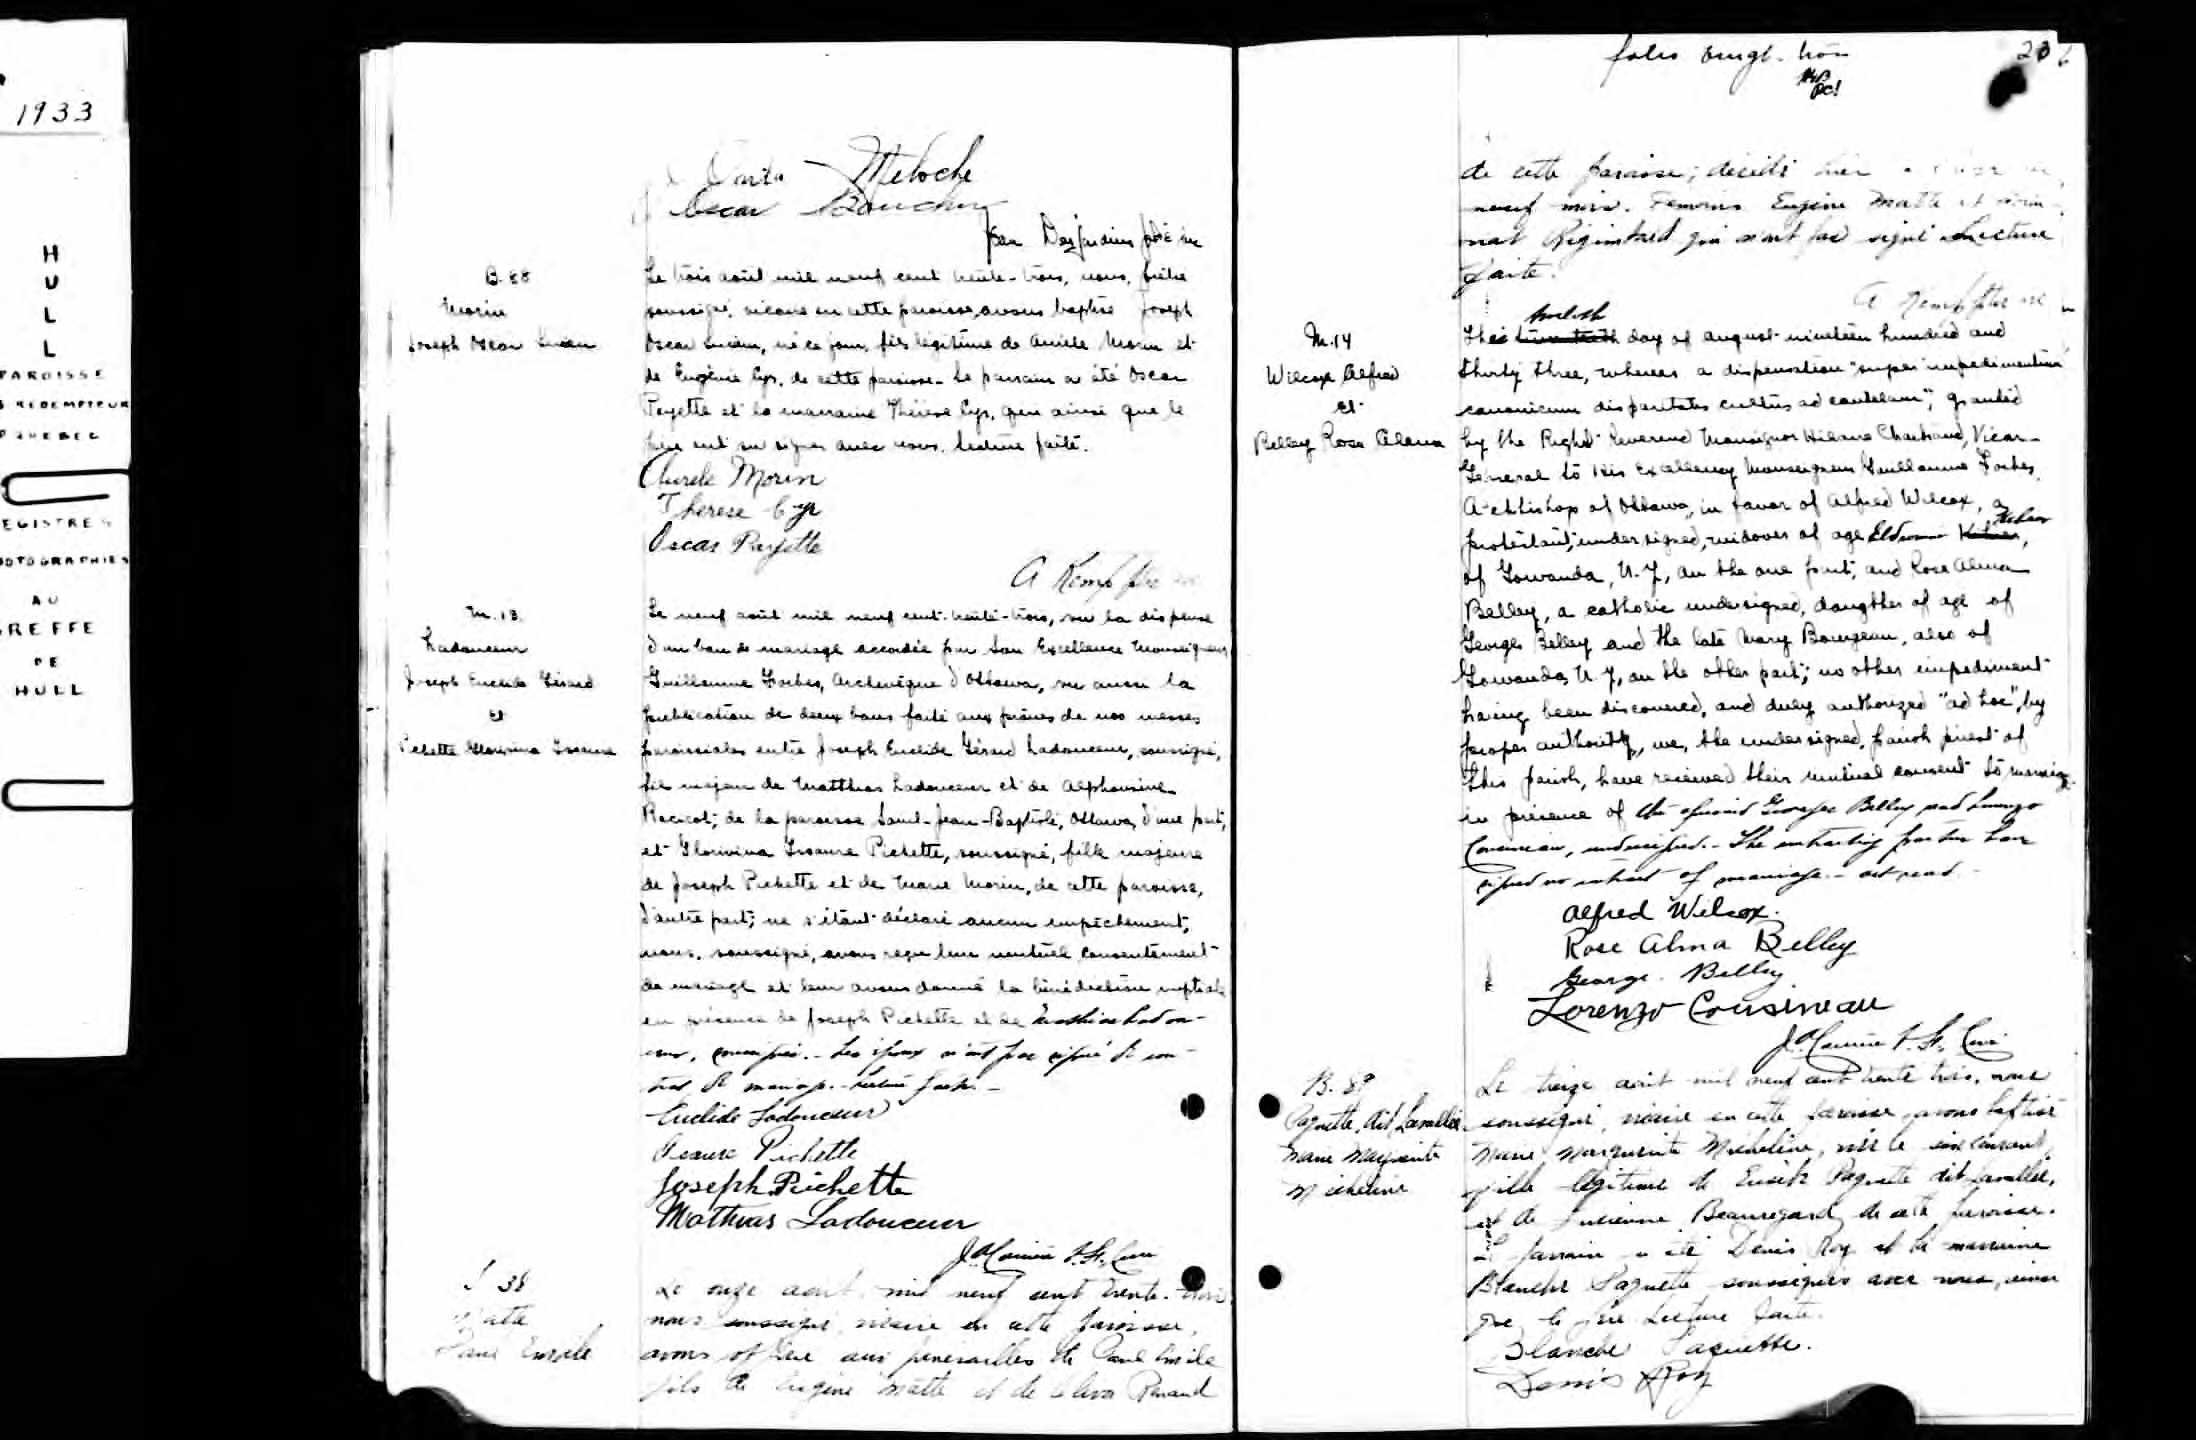 1933
H
U
L
L
PAROISSE
REDEMPTEUR
QUEBEC
REGISTRES
PHOTOGRAPHIES
AU
GREFFE
DE
HULL
Meloche
Oscar Boucher
Desjardins ptre
B. 88
Morin
Joseph Oscar Lucien
Le trois août mil neuf cent trente-trois, nous, prêtre
soussigné, vicaire en cette paroisse, avons baptisé Joseph
Oscar Lucien, né ce jour, fils légitime de Aurèle Morin et
de Eugénie Cyr, de cette paroisse. Le parrain a été Oscar
Payette et la marraine Thérèse Cyr, qui ainsi que le
père ont su signer avec nous. Lecture faite.
Aurele Morin
Therese Cyr
Oscar Payette
A Kemp ptre
M. 13.
Ladouceur
Joseph Euclide Gérard
et
Pichette Glorivina Isaure
Le neuf août mil neuf cent trente-trois, vu la dispense
d'un ban de mariage accordée par Son Excellence Monseigneur
Guillaume Forbes, Archevêque d'Ottawa, vu aussi la
publication de deux bans faite aux prônes de nos messes
paroissiales entre Joseph Euclide Gérard Ladouceur, soussigné,
fils majeur de Matthias Ladouceur et de Alphonsine
Racicot, de la paroisse Saint-Jean-Baptiste, Ottawa, d'une part,
et Glorivina Isaure Pichette, soussigné, fille majeure
de Joseph Pichette et de Marie Morin, de cette paroisse,
d'autre part; ne s'étant déclaré aucun empêchement,
nous, soussigné, avons reçu leur mutuel consentement
de mariage et leur avons donné la bénédiction nuptiale
en présence de Joseph Pichette et de Mathias Ladou-
ceur, soussignés.- Les époux n'ont pas signé de con-
trat de mariage.- Lecture faite.-
Euclide Ladouceur
Isaure Pichette
Joseph Pichette
Mathias Ladouceur
S 38
Matte
Paul Emile
Le onze août mil neuf cent trente-trois
nous soussigné vicaire en cette paroisse,
avons officié aux funérailles de Paul Emile
fils de Eugène Matte et de Renaud
folio vingt-trois
23
de cette paroisse; décédé hier
neuf mois. Témoins Eugène Matte et
Rigimbald qui n'ont pas signé Lecture
faite.
A Kemp ptre
M. 14
Wilcox Alfred
et
Belley Rose Alma
twelfth
The day of august nineteen hundred and
thirty three, whereas a dispensation "super impedimentum
canonicum disparitatis cultus ad cautelam", granted
by the Right Reverend Monsignor Hilaire Chartrand, Vicar-
General to His Excellency Monseigneur Guillaume Forbes,
Archbishop of Ottawa, in favor of Alfred Wilcox, a
protestant, undersigned, widower of age
of Gowanda, N. Y, on the one part, and Rose Alma
Belley, a catholic undersigned, daughter of age of
George Belley and the late Mary Bourgeau, also of
Gowanda, N. Y, on the other part; no other impediment
having been discovered, and duly authorized "ad hoc", by
proper authority, we, the undersigned, parish priest of
this parish, have received their mutual consent to marriage
in presence of the aforesaid George Belley and Lorenzo
Cousineau, undersigned.- The contracting parties have
signed no contract of marriage.- act read.-
Alfred Wilcox.
Rose Alma Belley
George. Belley
Lorenzo Cousineau
B. 89
Paquette, dit Lavallée
Marie Marguerite
Micheline
Le treize août mil neuf cent trente trois, nous
soussigné, vicaire en cette paroisse avons baptisé
Marie Marguerite Micheline, née le six courant,
fille légitime de Paquette dit Lavallée,
et de Lucienne Beauregard, de cette paroisse.
Le parrain a été Denis Roy et la marraine
Blanche Paquette soussignés avec nous, ainsi
que le père. Lecture faite.
Blanche Paquette.
Denis Roy